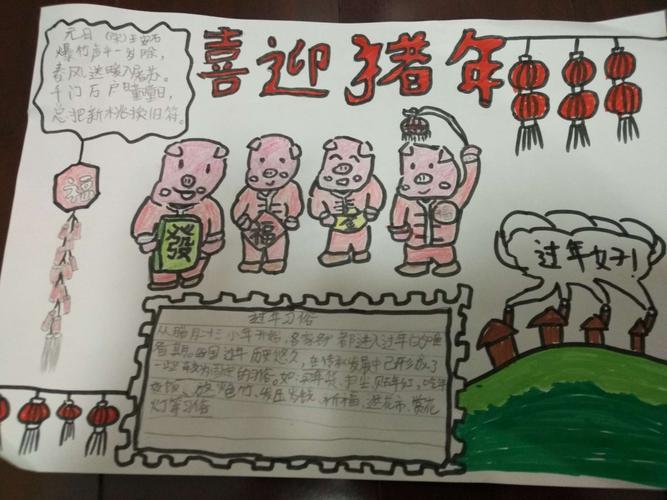 元日 (宋)王安石
爆竹声中一岁除，
春风送暖入屠苏。
千门万户曈曈日，
总把新桃换旧符。
喜迎猪年
福
發
福
过年好！
过年习俗
从腊月二十三小年开始，
都进入过年
春期。我国过年历史悠久，在传承发展中已形成了
一些较为固定的习俗。如买年货、扫尘、贴年红、吃年
夜饭、放炮竹、发压岁钱、祈福、逛花市、赏花
灯等习俗